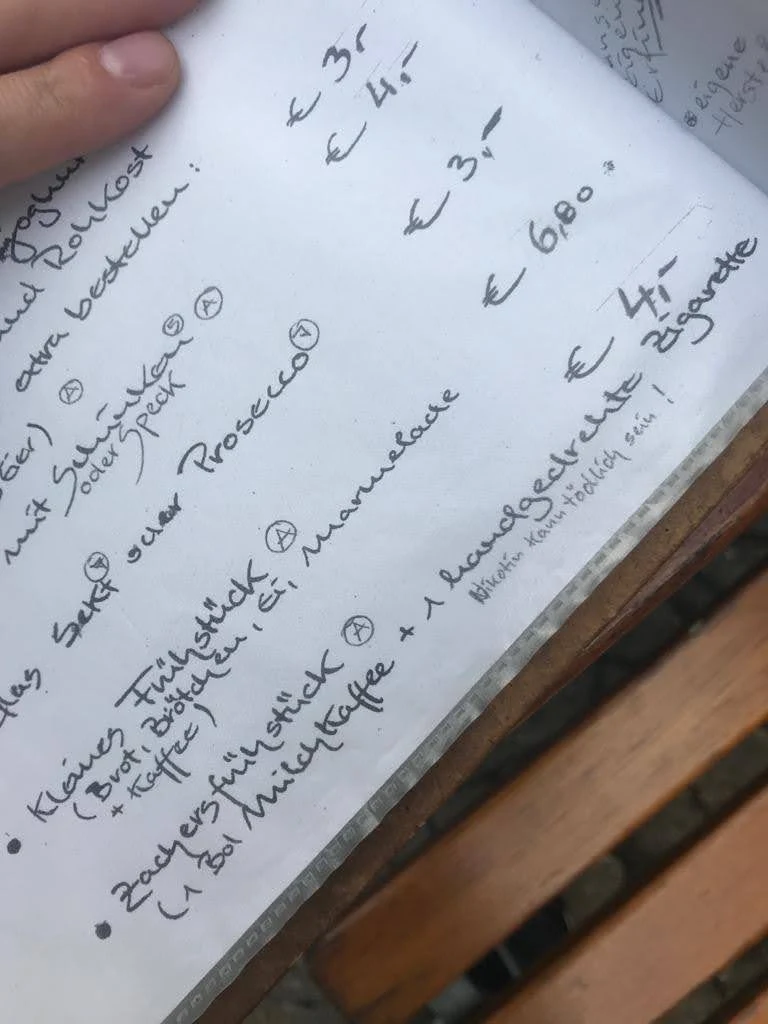 und Rohkost
extra bestellen:
€ 3,-
Eier) Ⓐ
€ 4,-
mit Schinken Ⓢ Ⓐ
oder Speck
€ 3,-
Glas Sekt Ⓥ oder Prosecco Ⓥ
€ 6,80
• Kleines Frühstück Ⓐ
(Brot, Brötchen, Ei, Marmelade
+ Kaffee)
€ 4,-
• Zachersfrühstück Ⓐ
(1 Bol Milchkaffee + 1 handgedrehte Zigarette
Nikotin kann tödlich sein!
eigene